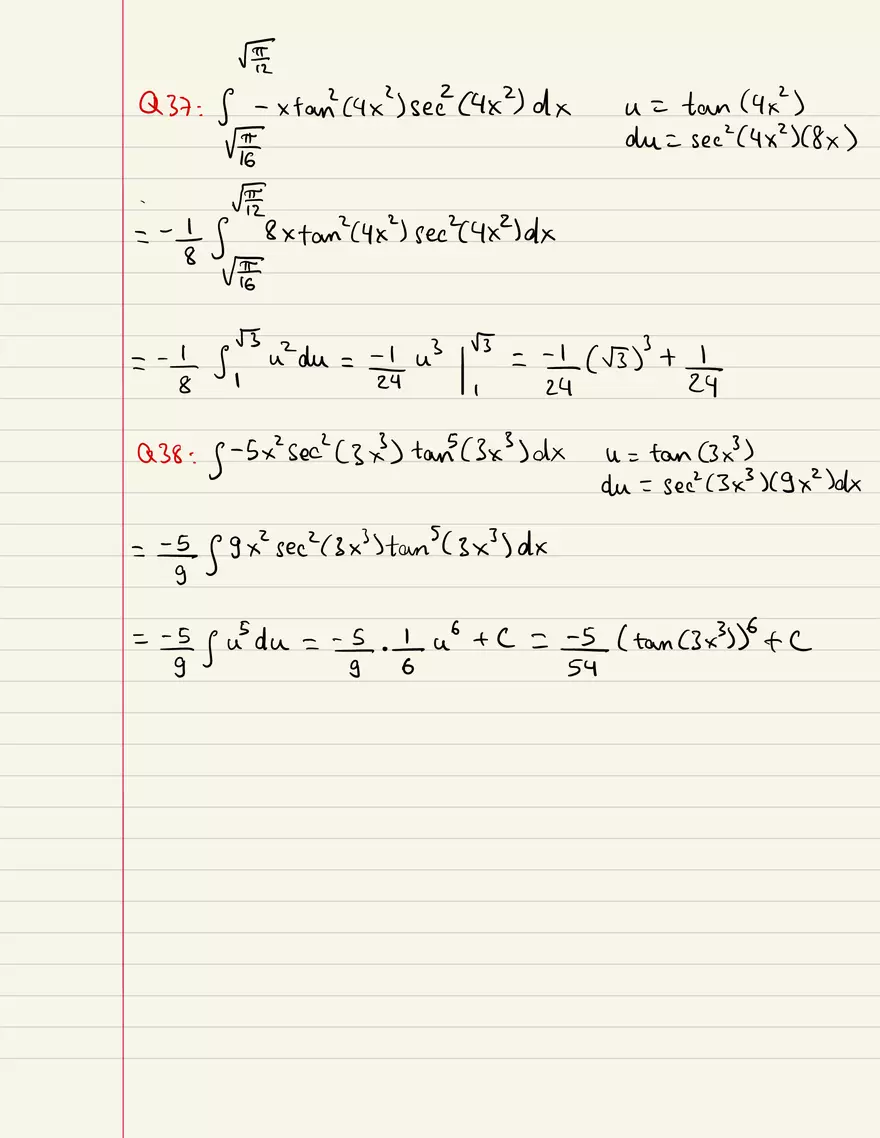 Q37: ∫_{√(π/16)}^{√(π/12)} -x tan²(4x²) sec²(4x²) dx    u = tan(4x²)
du = sec²(4x²)(8x)
= -1/8 ∫_{√(π/16)}^{√(π/12)} 8x tan²(4x²) sec²(4x²) dx
= -1/8 ∫_1^{√3} u² du = -1/24 u³ |_1^{√3} = -1/24 (√3)³ + 1/24
Q38: ∫ -5x² sec²(3x³) tan⁵(3x³) dx    u = tan(3x³)
du = sec²(3x³)(9x²)dx
= -5/9 ∫ 9x² sec²(3x³) tan⁵(3x³) dx
= -5/9 ∫ u⁵ du = -5/9 · 1/6 u⁶ + C = -5/54 (tan(3x³))⁶ + C